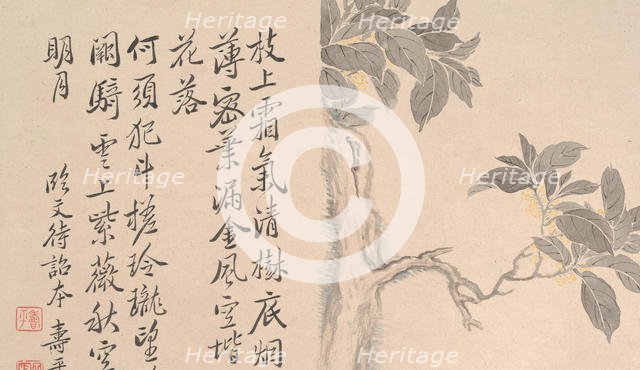 枝上霜氣清樹底烟
薄密葉漏金風空堦
花落
何須犯斗槎玲瓏望
闕騎雲上紫薇秋空
明月
臨文待詔本 壽平
Heritage
Heritage
Heritage
Heritage
Heritage
Heritage
Heritage
Heritage